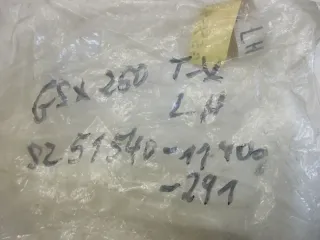 LH
GSX 250 T-X
LH
SZ 51540-11400
-291